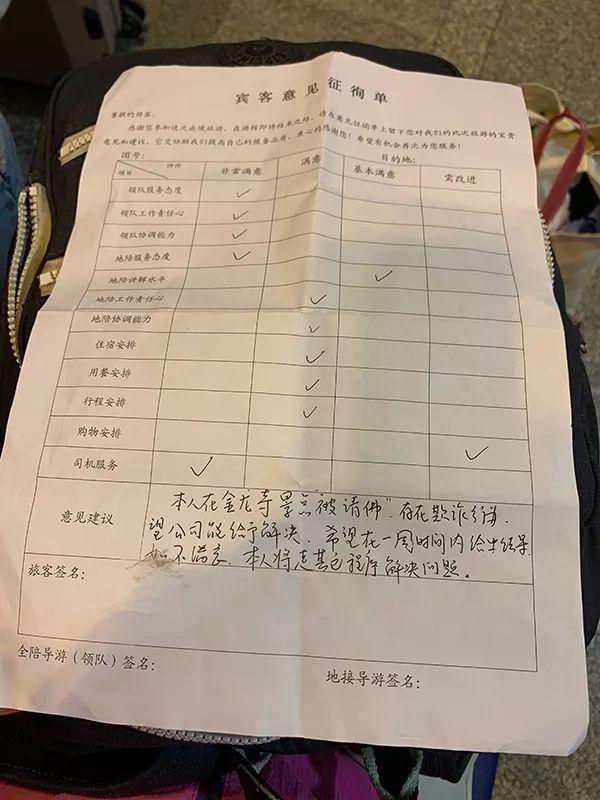 宾客意见征徇单
尊敬的游客:
感谢您参加这次出境旅游,在游程即将结束之际,请在意见征徇单上留下您对我们的此次旅游的宝贵
意见和建议,它交协助我们提高自己的服务品质,衷心的感谢您!希望有机会再次为您服务!
团号: 目的地:
评价 项目 非常满意 满意 基本满意 需改进
领队服务态度 ✓
领队工作责任心 ✓
领队协调能力 ✓
地陪服务态度 ✓
地陪讲解水平 ✓
地陪工作责任心 ✓
地陪协调能力 ✓
住宿安排 ✓
用餐安排 ✓
行程安排 ✓
购物安排 ✓
司机服务 ✓
意见建议
本人在金龙寺景点"被请佛",存在欺诈行为,
望公司能给予解决,希望在一周时间内给出结果
如不满意,本人将走其它程序解决问题。
旅客签名:
全陪导游(领队)签名:
地接导游签名: